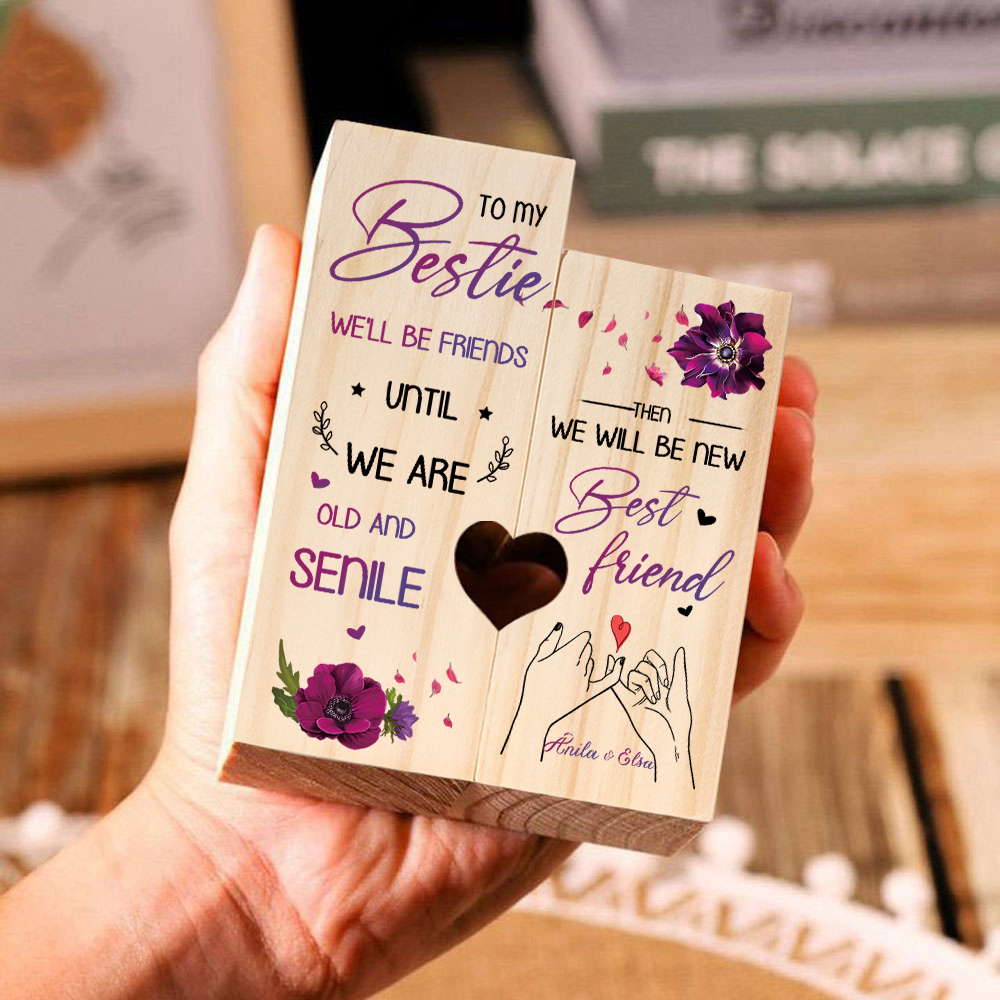 TO MY
Bestie
WE'LL BE FRIENDS
UNTIL
WE ARE
OLD AND
SENILE
THEN
WE WILL BE NEW
Best
friend
Anila & Elsa
THE SOLACE